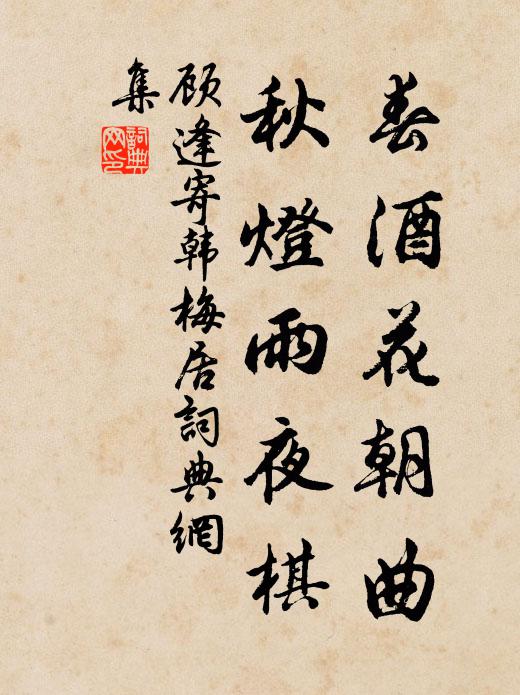 春酒花朝曲
秋燈雨夜棋
顾逢寄韩梅居詞典網
集
詞典
网印